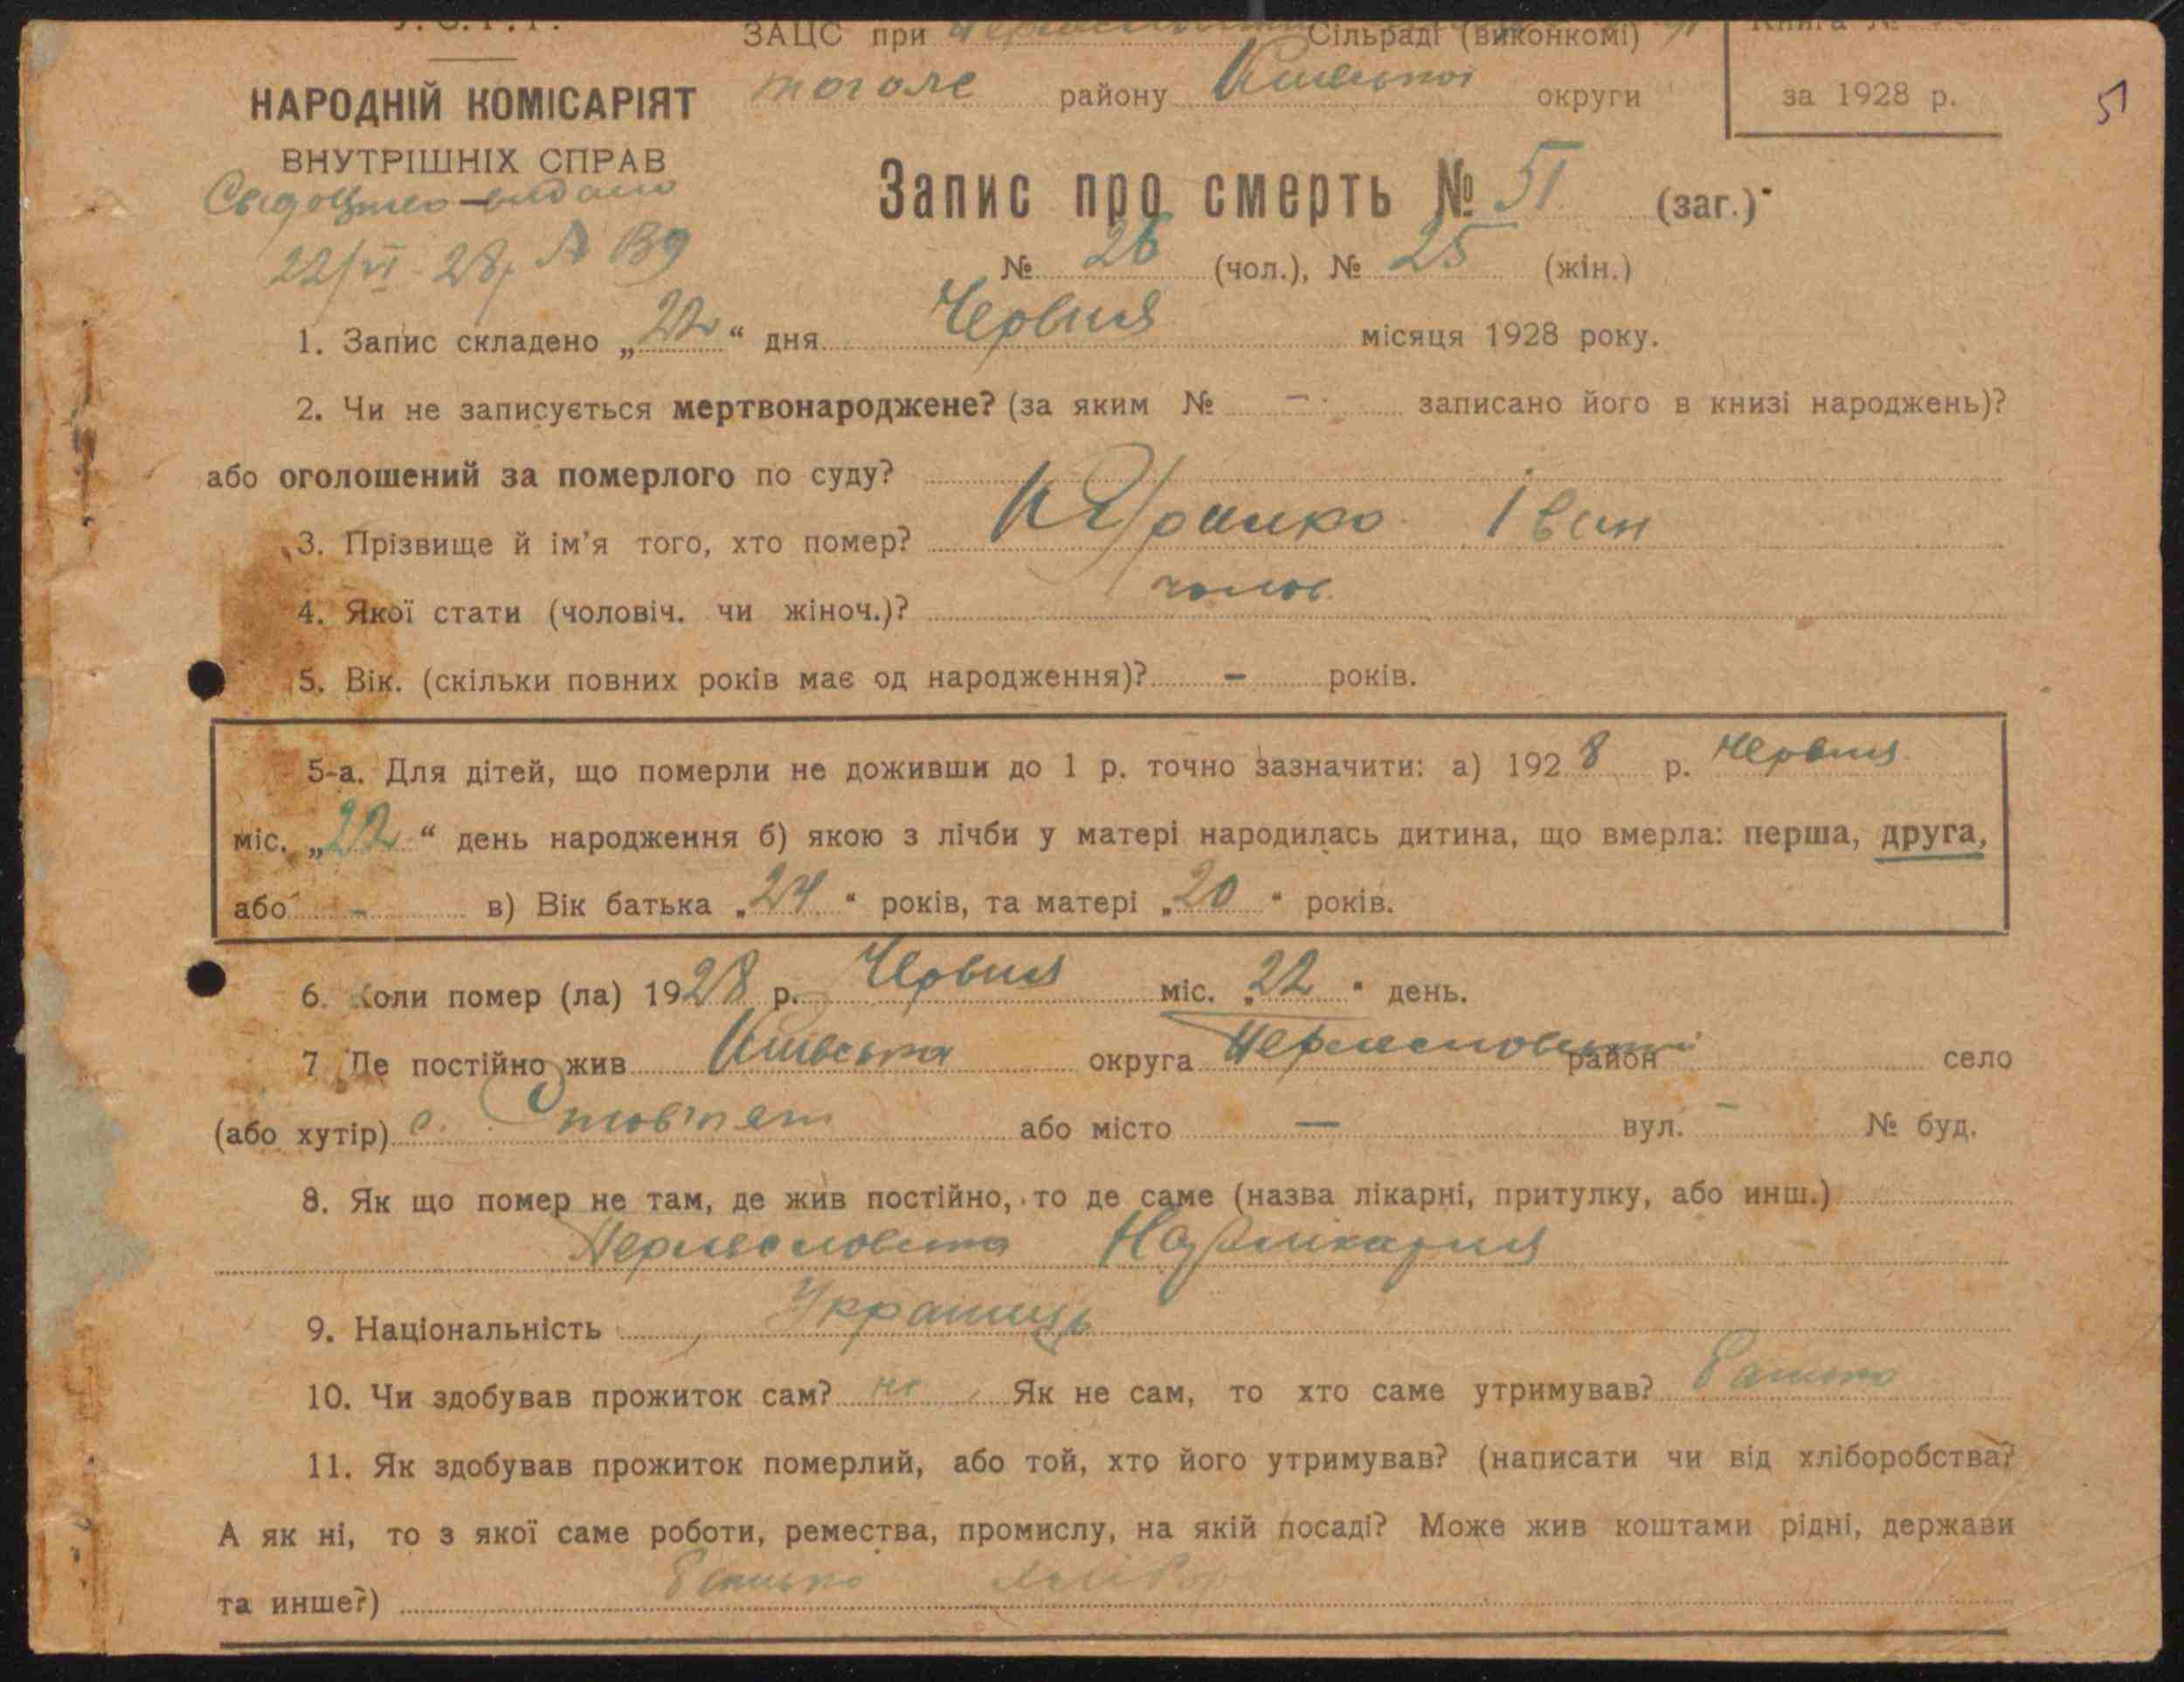 У.С.Р.Р.
ЗАЦС при Сільраді (виконкомі)
Книга №
НАРОДНІЙ КОМІСАРІЯТ
ВНУТРІШНІХ СПРАВ
тогоже району Київської округи
за 1928 р.
51
Свідоцтво видано
22/VI 28р № 139
Запис про смерть № 51 (заг.)
№ 26 (чол.), № 25 (жін.)
1. Запис складено „22“ дня Червня місяця 1928 року.
2. Чи не записується мертвонароджене? (за яким № – записано його в книзі народжень)?
або оголошений за померлого по суду?
3. Прізвище й ім'я того, хто помер? Іван
4. Якої стати (чоловіч. чи жіноч.)? чолов.
5. Вік. (скільки повних років має од народження)? – років.
5-а. Для дітей, що померли не доживши до 1 р. точно зазначити: а) 1928 р. Червня
міс. „22“ день народження б) якою з лічби у матері народилась дитина, що вмерла: перша, друга,
або – в) Вік батька „24“ років, та матері „20“ років.
6. Коли помер (ла) 1928 р. Червня міс. „22“ день.
7 Де постійно жив Київська округа район село
(або хутір) с. Стовп'яги або місто – вул. – № буд.
8. Як що помер не там, де жив постійно, то де саме (назва лікарні, притулку, або инш.)
9. Національність Українець
10. Чи здобував прожиток сам? не Як не сам, то хто саме утримував? Батько
11. Як здобував прожиток померлий, або той, хто його утримував? (написати чи від хліборобства?
А як ні, то з якої саме роботи, ремества, промислу, на якій посаді? Може жив коштами рідні, держави
та инше?) Батько хлібор